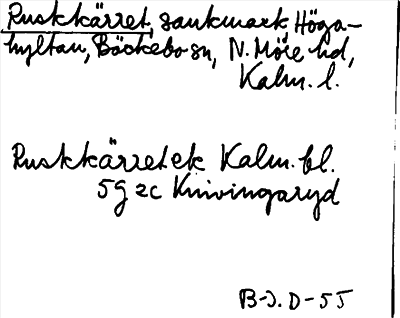 Ruskkärret, sankmark, Höga-
hyltan, Bäckebo sn, N. Möre hd,
Kalm. l.
Ruskkärret ek Kalm. bl.
5G 2c Knivingaryd
B-J. D-55